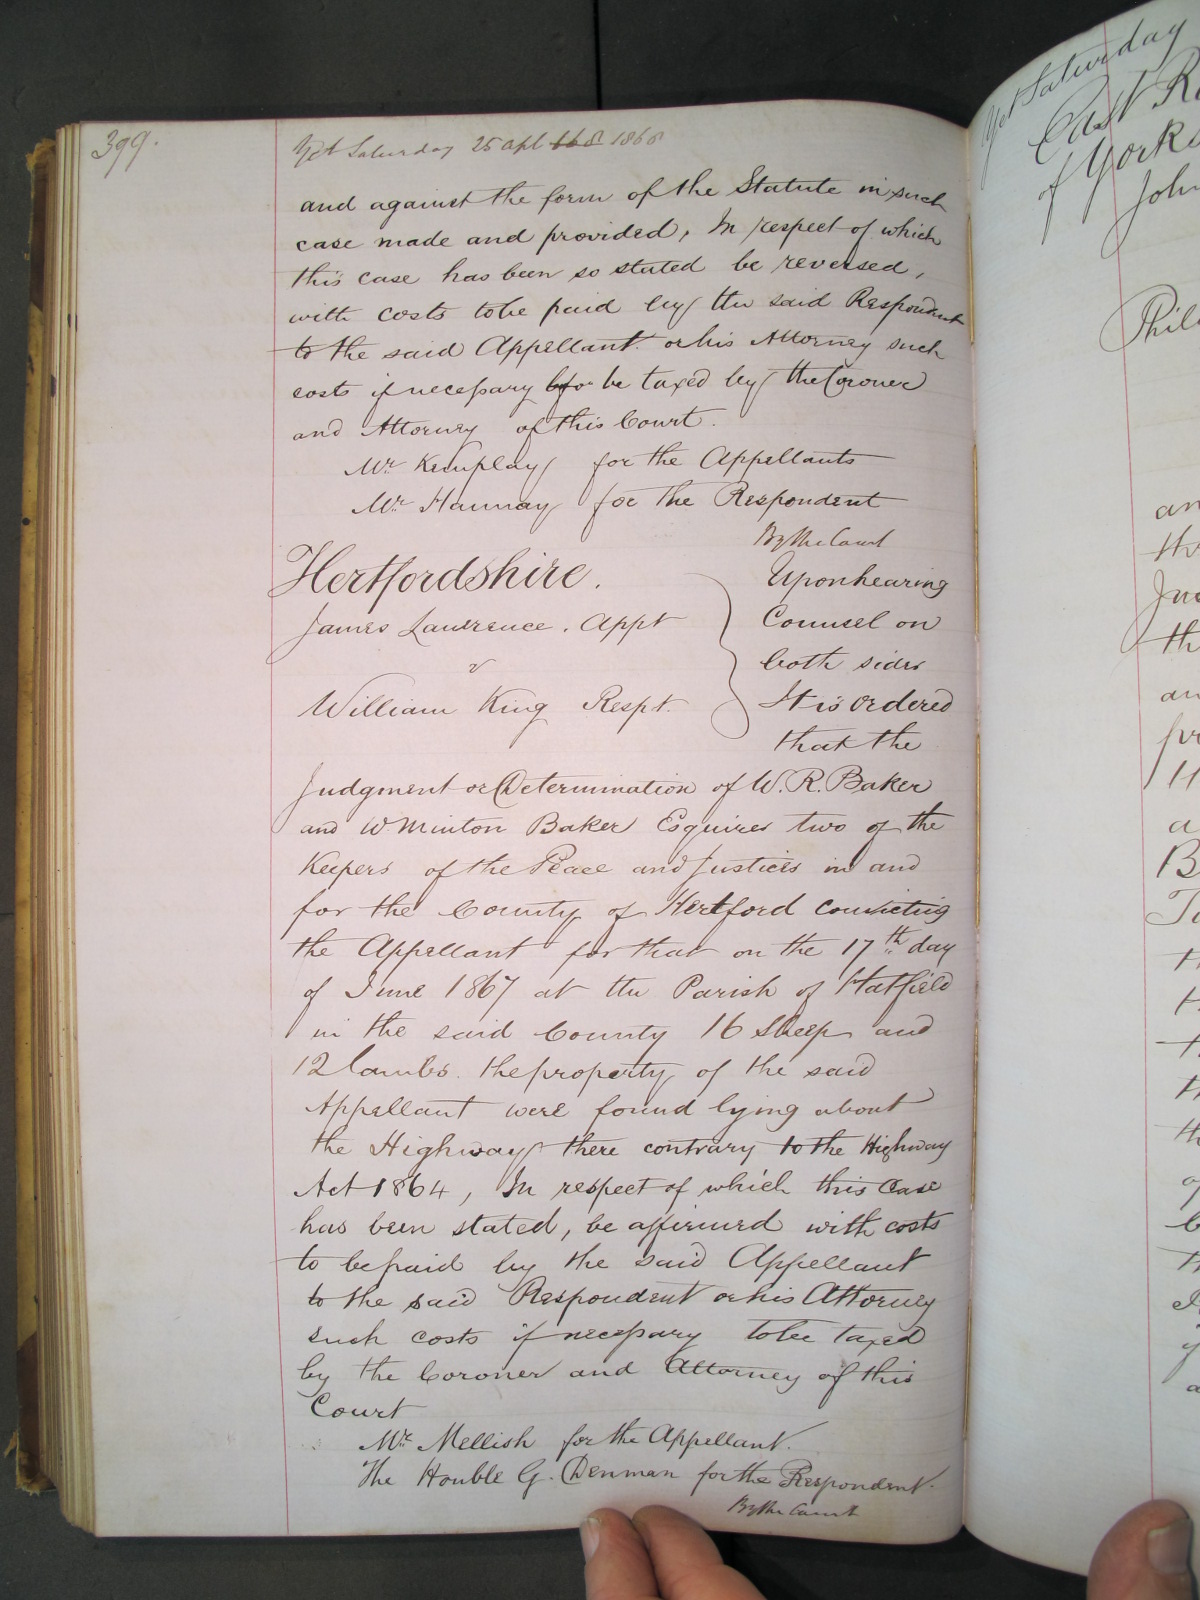 399.
Yet Saturday 25 Apl 168 1868
and against the form of the Statute in such
case made and provided, In respect of which
this case has been so stated be reversed,
with costs to be paid by the said Respondent
to the said Appellant or his Attorney such
costs if necessary be taxed by the Coroner
and Attorney of this Court.
Mr. Kemplay for the Appellants
Mr. Hannay for the Respondent
By the Court
Hertfordshire.
James Lawrence. Appt
v
William King Respt.
Upon hearing
Counsel on
both sides
It is ordered
that the
Judgment or Determination of W. R. Baker
and W. Minton Baker Esquires two of the
Keepers of the Peace and Justices in and
for the County of Hertford convicting
the Appellant for that on the 17th day
of June 1867 at the Parish of Hatfield
in the said County 16 Sheep and
12 lambs the property of the said
Appellant were found lying about
the Highway there contrary to the Highway
Act 1864, In respect of which this Case
has been stated, be affirmed with costs
to be paid by the said Appellant
to the said Respondent or his Attorney
such costs if necessary to be taxed
by the Coroner and Attorney of this
Court
Mr. Mellish for the Appellant.
The Honble G. Denman for the Respondent.
By the Court
Yet Saturday
East R
of Yorks
John
Phil